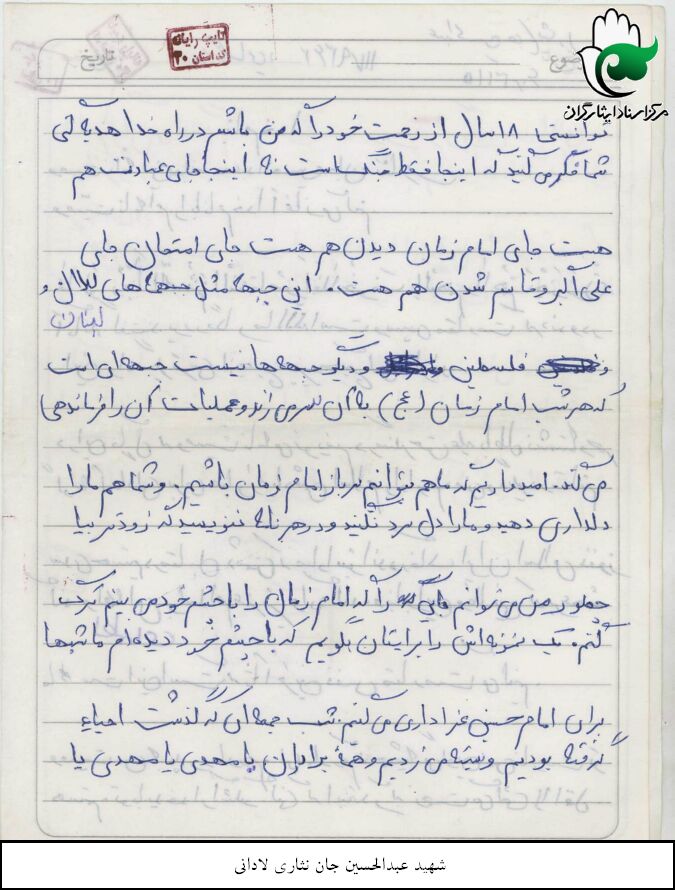 مرکز اسناد ایثارگران
تایپ رایانه
کد استان ۲۰
موضوع
تاریخ
توانستی ۱۸ سال از زحمت خود را که من باشم در راه خدا هدیه کنی
شما فکر می کنید که اینجا فقط جنگ است نه اینجا جای عبادت هم
هست جای امام زمان دیدن هم هست جای امتحان جای
علی اکبر و قاسم شدن هم هست. این جبهه مثل جبهه های و
لبنان
و فلسطین و دیگر جبهه ها نیست جبهه ای است
که هر شب امام زمان (عج) به آن سر می زند و عملیات آن را فرماندهی
می کند. امیدواریم که ما هم بتوانیم سرباز امام زمان باشیم. و شما هم ما را
دلداری دهید و ما را دل سرد نکنید و در هر نامه ننویسید که زودتر بیا
چطور من می توانم جایی را که امام زمان را با چشم خود می بینم ترک
کنم. یک نمونه اش را برایتان بگویم که با چشم خود دیده ام ما شبها
برای امام حسین عزاداری می کنیم. شب جمعه ای که گذشت احیاء
گرفته بودیم و سینه می زدیم و همۀ برادران یا مهدی یا مهدی یا
شهید عبدالحسین جان نثاری لادانی